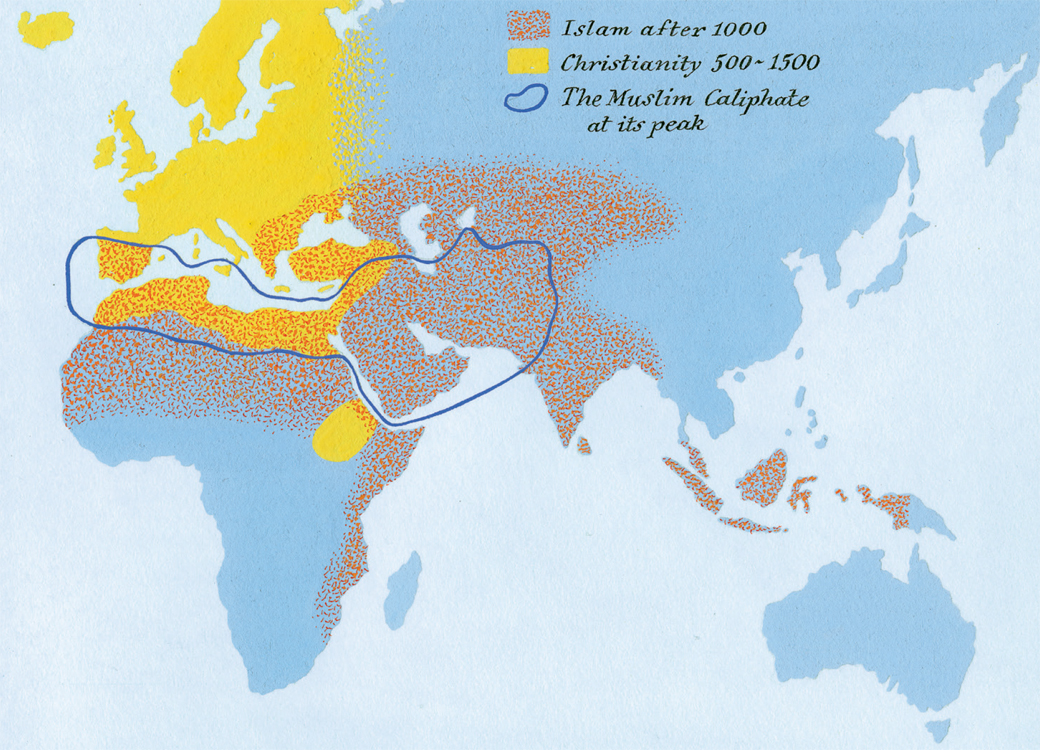 Islam after 1000
Christianity 500~1500
The Muslim Caliphate
at its peak